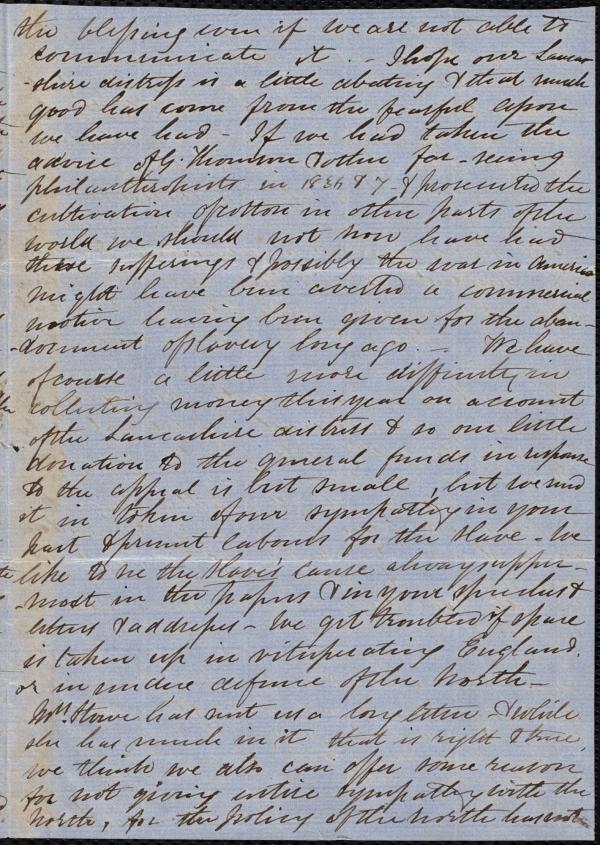 the blessing even if we are not able to
communicate it. - I hope our Lanca
-shire distress is a little abating & that much
good has come from the fearful
we have had - If we had taken the
advice of G. Thompson & other far-seeing
philanthropists in 1836 & 7 & prosecuted the
cultivation of cotton in other parts of the
world we should not now have had
these sufferings & possibly the war in America
might have been averted a commercial
motive having been given for the aban-
-donment of slavery long ago. - We have
of course a little more difficulty in
collecting money this year on account
of the Lancashire distress & so our little
donation to the general funds in response
to the appeal is but small, but we send
it in token of our sympathy in your
past & present labours for the slave - We
like to see the slave's cause always upper-
-most in the papers & in your speeches &
letters & addresses - We get troubled if space
is taken up in vituperating England,
or in undue defence of the North -
Mrs. Stowe has sent us a long letter & while
she has much in it that is right & true,
we think we also can offer some reason
for not giving entire sympathy with the
North, for the policy of the North has not